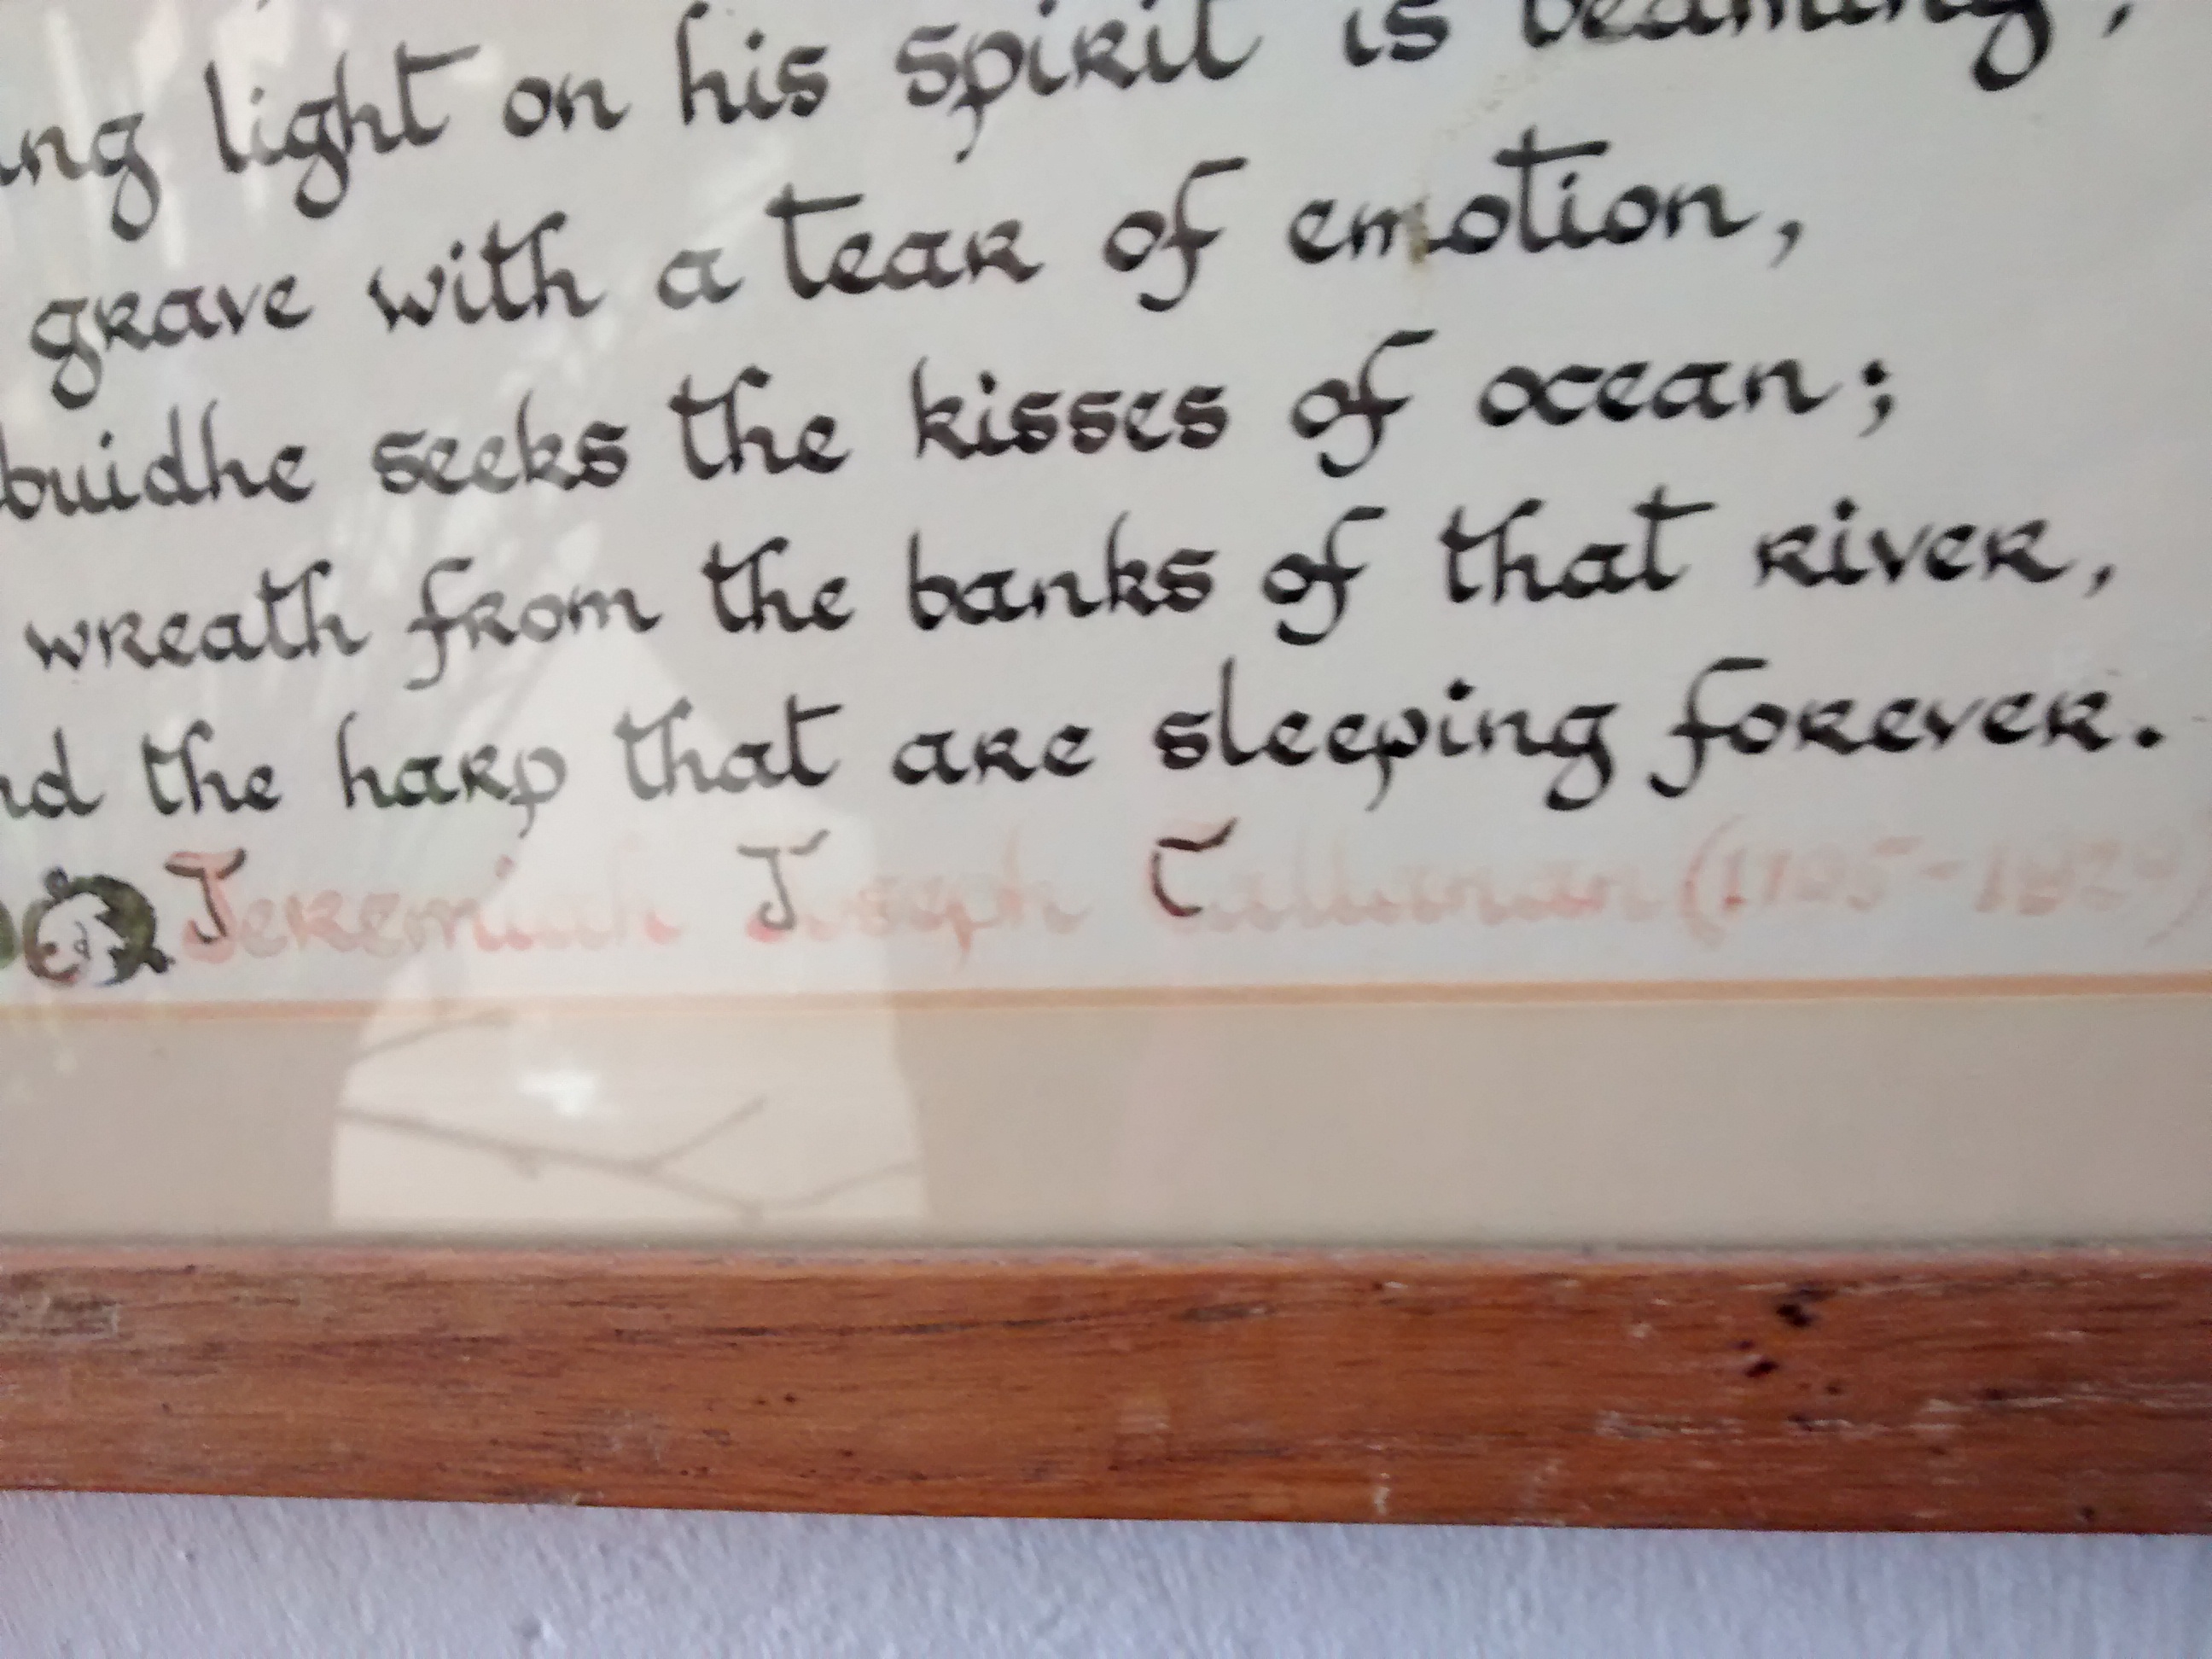 ing light on his spirit is beaming,
grave with a tear of emotion,
buidhe seeks the kisses of ocean;
wreath from the banks of that river,
nd the harp that are sleeping forever.
Jeremiah Joseph Callanan (1795-1829)